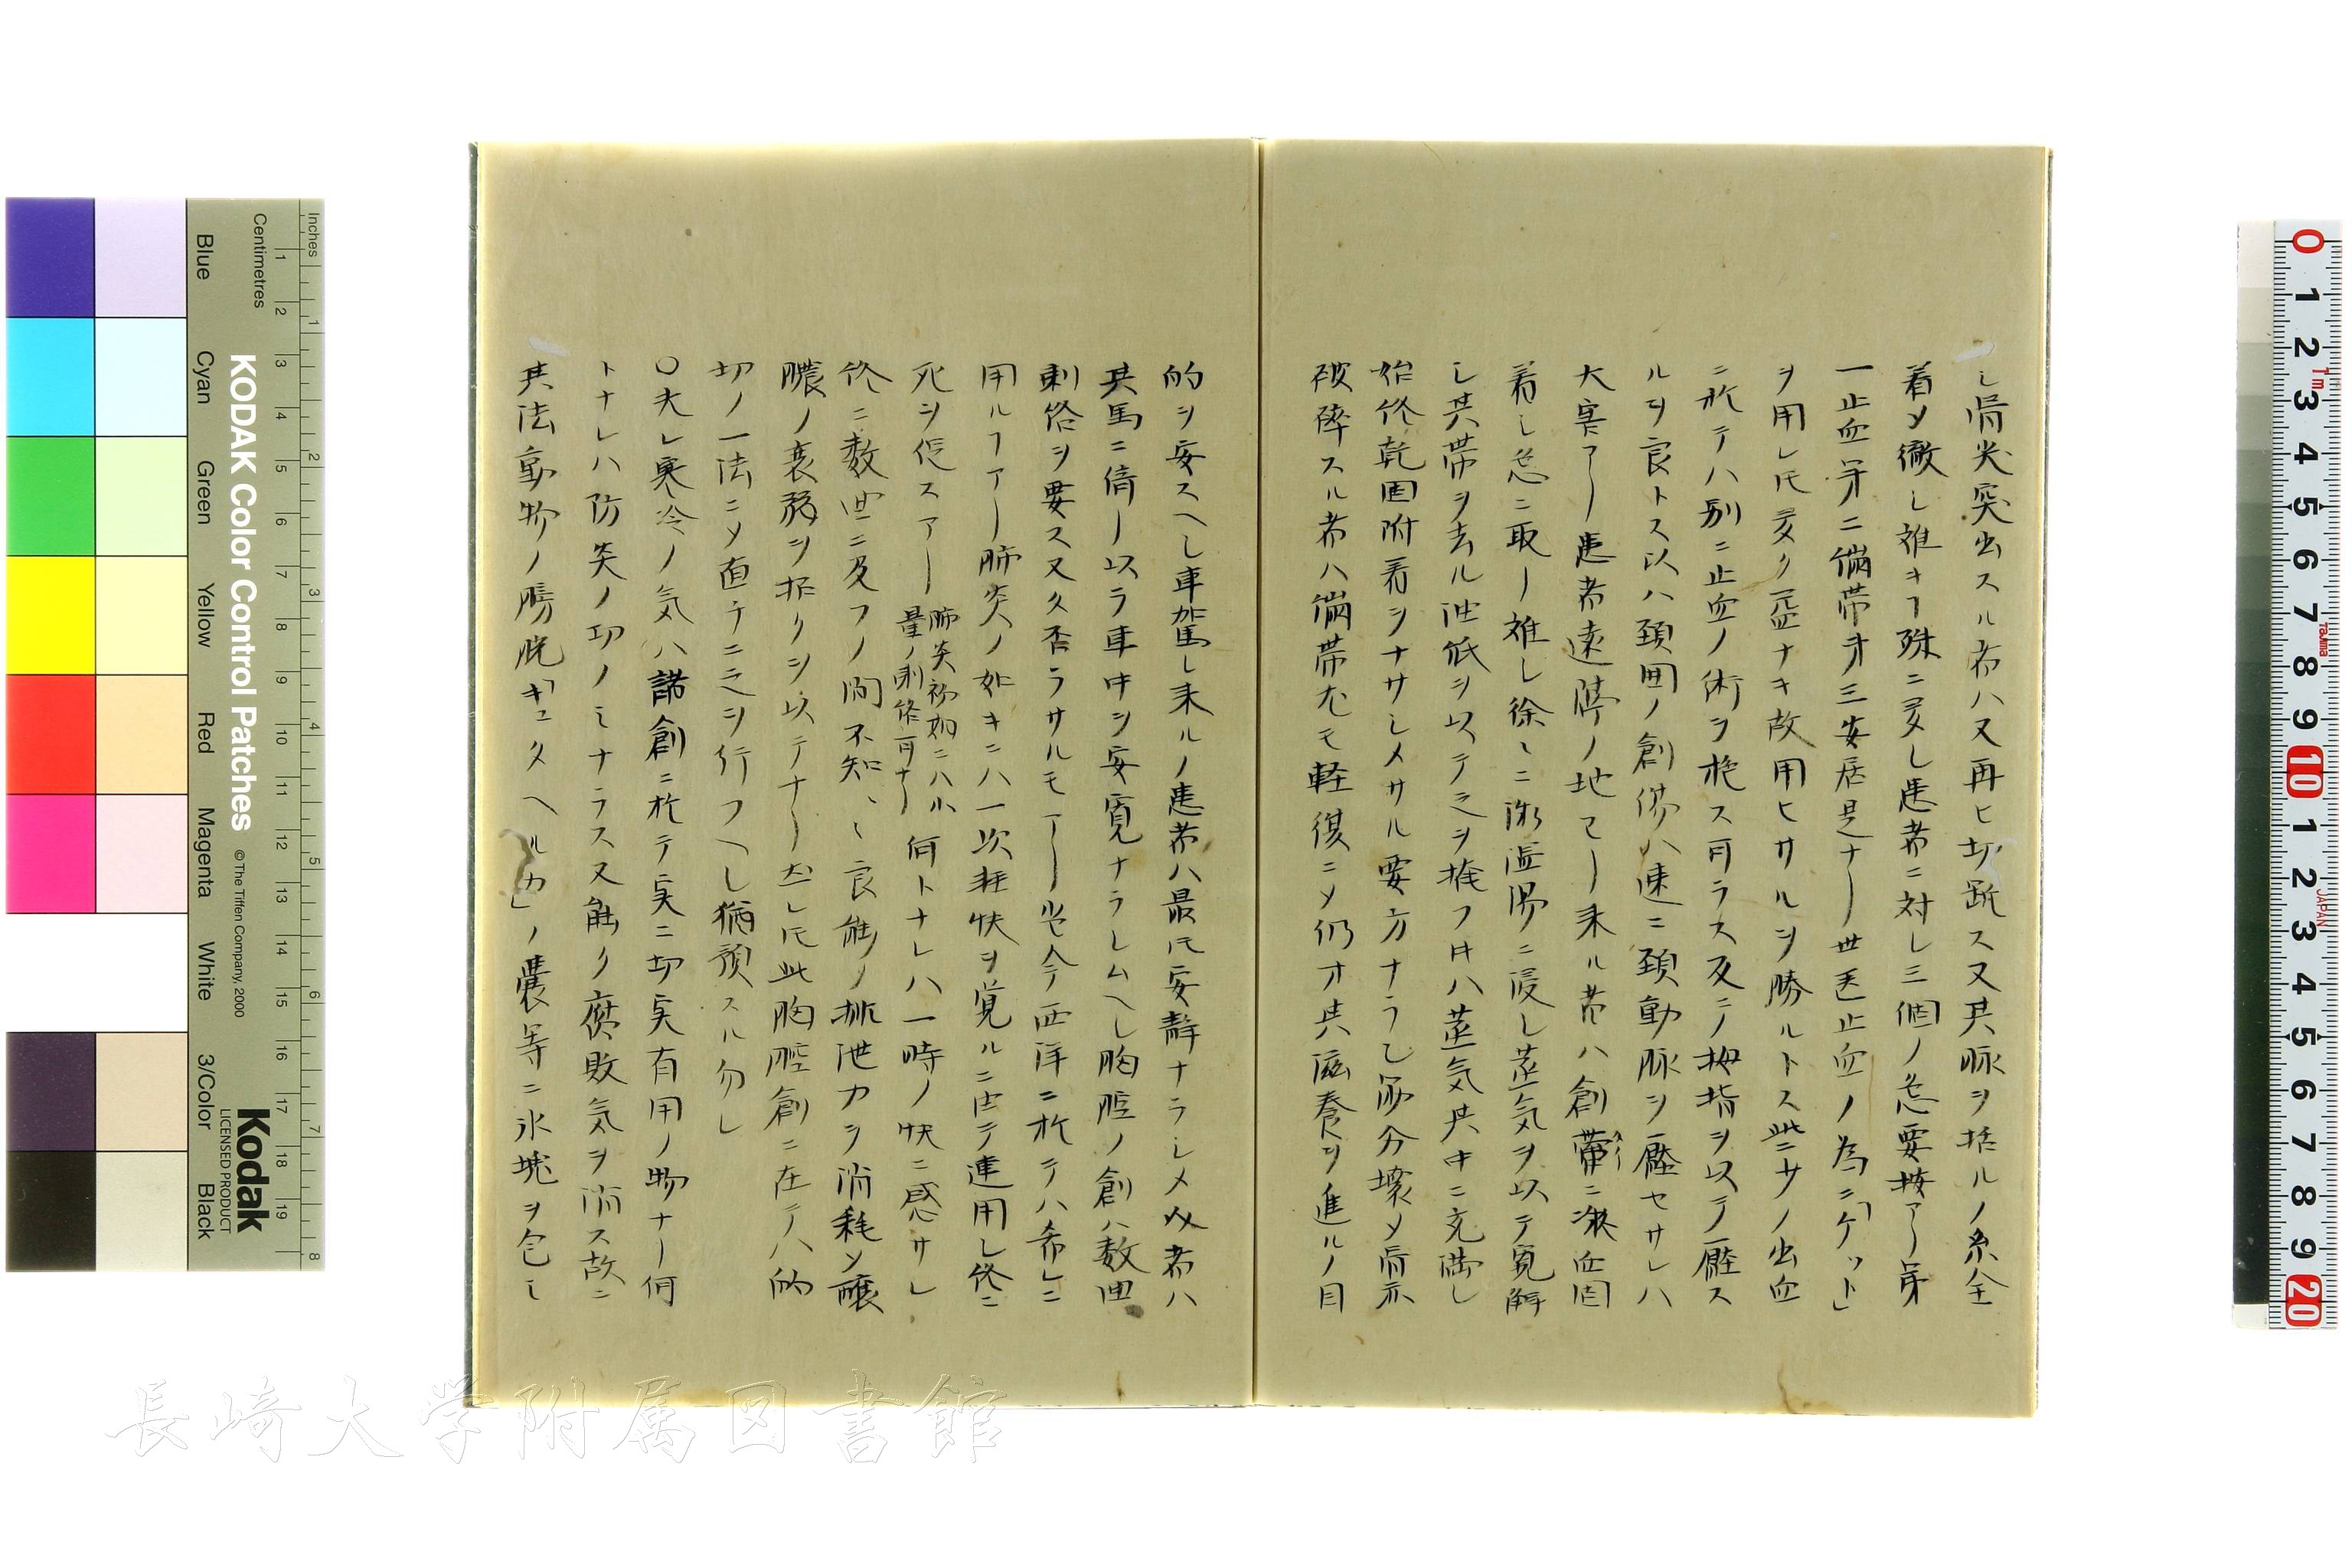 シ骨尖突出スル者ハ又再ヒ切断ス又其脈ヲ括ルノ糸全
着メ徹シ難キヿ殊ニ多シ患者ニ対シ三個ノ急要按アリ第
一止血第二繃帯第三安居是ナリ世医止血ノ為ニ「ケット」
ヲ用レ𪜈多ク益ナキ故用ヒサルヲ勝ルトス些ニサノ出血
ニ於テハ別ニ止血ノ術ヲ施ス可ラス反テノ拇指ヲ以テ壓ス
ルヲ良トス以ハ頚囲ノ創傷ハ速ニ頚動脈ヲ壓セサレハ
大害アリ患者遠隔ノ地ヨリ来ル者ハ創帶ニ凝血固
着シ急ニ取リ難シ徐々ニ微温湯ニ浸シ蒸気ヲ以テ寛解
シ其帯ヲ去ル油紙ヲ以テ之ヲ掩フ片ハ蒸気其中ニ充満シ
始終乾固附着ヲナサシメサル要方ナラ乙部分壊メ骨亦
破砕スル者ハ繃帯尤モ軽復ニメ仍オ其滋養ヲ進ルノ目
的ヲ妄スヘシ車駕シ来ルノ患者ハ最𪜈安静ナラシメ以者ハ
其馬ニ備リ以ラ車中ヲ安寛ナラシムヘシ胸腔ノ創ハ数回
刺絡ヲ要ス又久否ラサルモアリ当今西洋ニ於テハ希レニ
用ルヿアリ肺炎ノ如キニハ一次軽快ヲ覚ルニ由テ連用シ終ニ
死ヲ促スアリ
肺炎初初ニハ小
量ノ刺絡可ナリ
何トナレハ一時ノ快ニ感サレ
終ニ数回ニ及フノ間不知々々良能ノ排泄力ヲ消耗メ醸
膿ノ衰弱ヲ招クヲ以テナリ然レ𪜈此胸腔創ニ在テハ的
切ノ一法ニメ直チニ之ヲ行フヘシ猶預スル勿レ
〇夫レ寒冷ノ気ハ諸創ニ於テ実ニ切実有用ノ物ナリ何
トナレハ防炎ノ功ノミナラス又能ク腐敗気ヲ消ス故ニ
其法動物ノ膀胱「キユタヘルカ」ノ嚢等ニ氷塊ヲ包ミ
Inches
Centimetres
KODAK Color Control Patches
© The Tiffen Company, 2000
Kodak
LICENSED PRODUCT
Blue
Cyan
Green
Yellow
Red
Magenta
White
3/Color
Black
長崎大学附属図書館